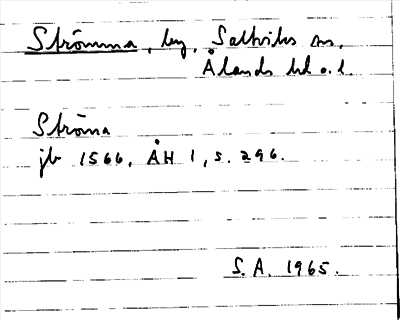 Strömma, by, Saltviks sn,
Ålands hd o. l.
Ströma
jb 1566, ÅH 1, s. 296.
S. A. 1965.